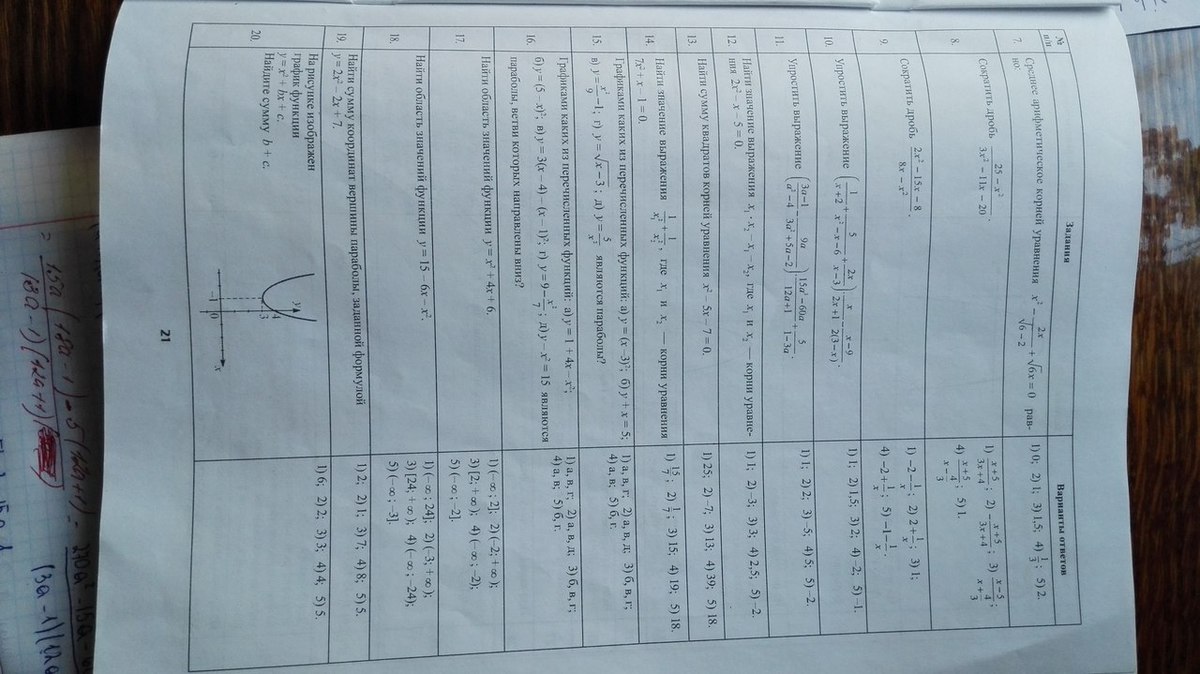 № п/п Задания Варианты ответов
7. Среднее арифметическое корней уравнения x² − 2x/(√6−2) + √6x = 0 рав-
но:
1) 0; 2) 1; 3) 1,5; 4) 1/3; 5) 2.
8. Сократить дробь (25−x²)/(3x²−11x−20).
1) (x+5)/(3x+4); 2) −(x+5)/(3x+4); 3) (x−5)/(x+4/3);
4) (x+5)/(x−4/3); 5) 1.
9. Сократить дробь (2x²−15x−8)/(8x−x²).
1) −2−1/x; 2) 2+1/x; 3) 1;
4) −2+1/x; 5) −1−1/x.
10. Упростить выражение (1/(x+2) + 5/(x²−x−6) + 2x/(x−3)) · x/(2x+1) − (x−9)/(2(3−x)).
1) 1; 2) 1,5; 3) 2; 4) −2; 5) −1.
11. Упростить выражение
1) 1; 2) 2; 3) −5; 4) 5; 5) −2.
12. Найти значение выражения x₁ · x₂ − x₁ − x₂, где x₁ и x₂ — корни уравне-
ния 2x² − x − 5 = 0.
1) 1; 2) −3; 3) 3; 4) 2,5; 5) −2.
13. Найти сумму квадратов корней уравнения x² − 5x − 7 = 0.
1) 25; 2) −7; 3) 13; 4) 39; 5) 18.
14. Найти значение выражения 1/x₁² + 1/x₂², где x₁ и x₂ — корни уравнения
7x² + x − 1 = 0.
1) 15/7; 2) 1/7; 3) 15; 4) 19; 5) 18.
15. Графиками каких из перечисленных функций: а) y = (x − 3)²; б) y + x = 5;
в) y = x²/9 − 1; г) y = √x − 3; д) y = 5/x² являются параболы?
1) а, в, г; 2) а, в, д; 3) б, в, г;
4) а, в; 5) б, г.
16. Графиками каких из перечисленных функций: а) y = 1 + 4x − x²;
б) y = (5 − x)²; в) y = 3(x − 4) − (x − 1)²; г) y = 9 − x²/7; д) y − x² = 15 являются
параболы, ветви которых направлены вниз?
1) а, в, г; 2) а, в, д; 3) б, в, г;
4) а, в; 5) б, г.
17. Найти область значений функции y = x² + 4x + 6.
1) (−∞; 2]; 2) (−2; +∞);
3) [2; +∞); 4) (−∞; −2);
5) (−∞; −2].
18. Найти область значений функции y = 15 − 6x − x².
1) (−∞; 24]; 2) (−3; +∞);
3) [24; +∞); 4) (−∞; −24);
5) (−∞; −3].
19. Найти сумму координат вершины параболы, заданной формулой
y = 2x² − 2x + 7.
1) 2; 2) 1; 3) 7; 4) 8; 5) 5.
20. На рисунке изображен
график функции
y = x² + bx + c.
Найдите сумму b + c.
y
4
3
−1 0 x
1) 6; 2) 2; 3) 3; 4) 4; 5) 5.
21